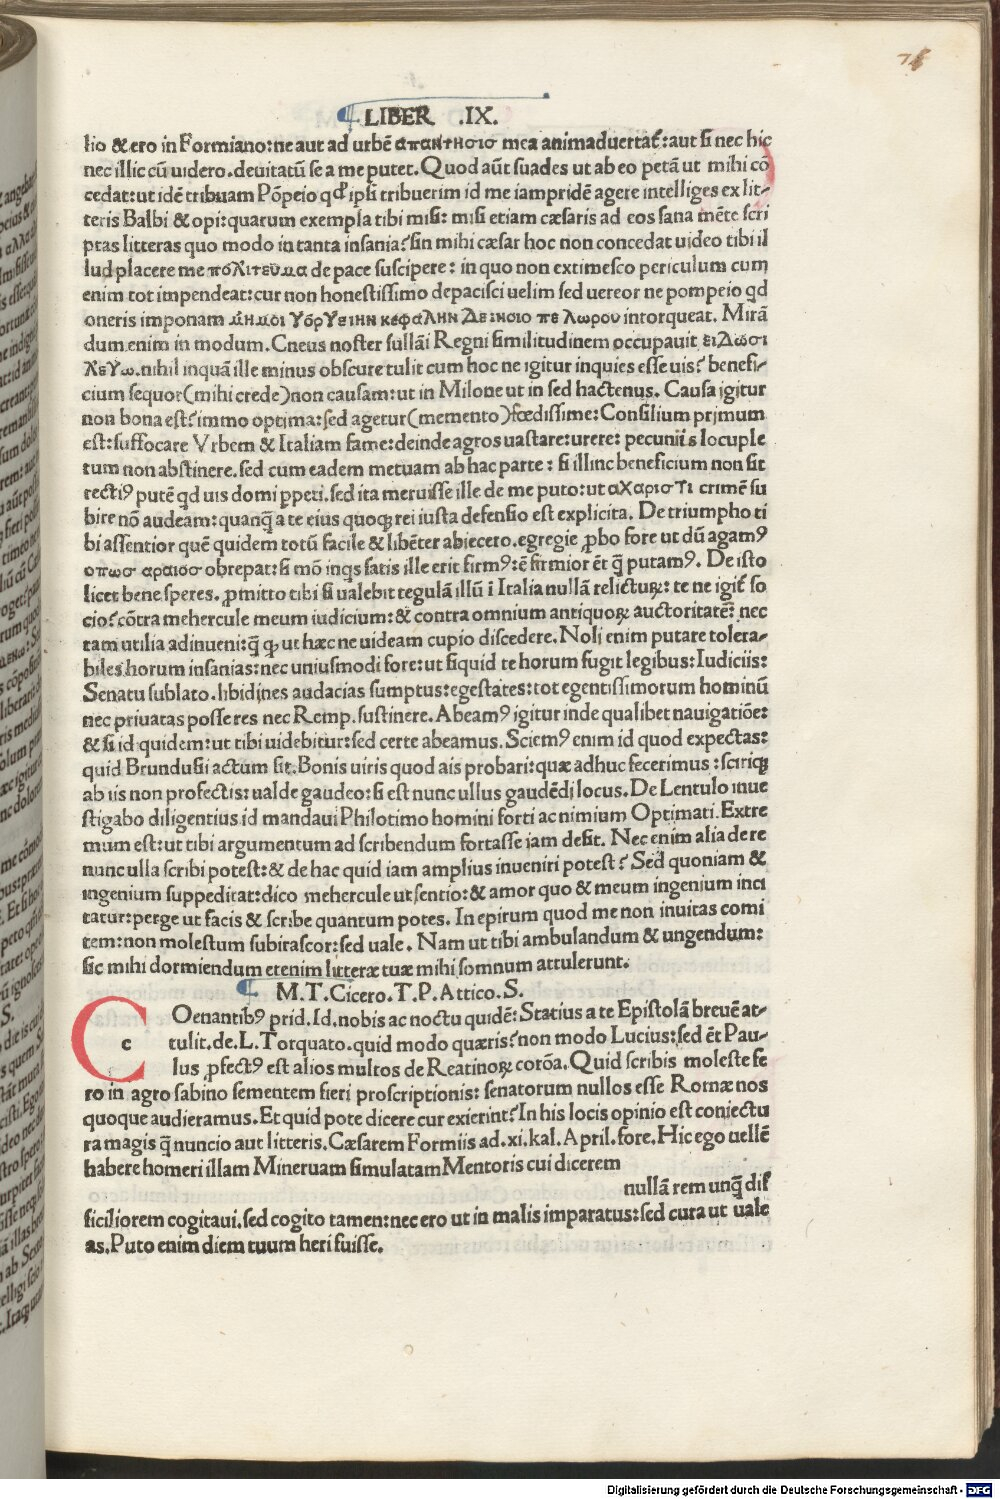 76
LIBER IX.
lio & ero in Formiano: ne aut ad urbē ἀπάντησισ mea animaduertat᷑: aut si nec hic
nec illic cū uidero. deuitatū se a me putet. Quod aūt suades ut ab eo petā ut mihi cō
cedat: ut idē tribuam Pōpeio qđ ipsi tribuerim id me iampridē agere intelliges ex lit-
teris Balbi & opi: quarum exempla tibi misi: misi etiam cæsaris ad eos sana mēte scri
ptas litteras quo modo in tanta insania? sin mihi cæsar hoc non concedat uideo tibi il
lud placere me πολιτευμα de pace suscipere: in quo non extimesco periculum cum
enim tot impendeat: cur non honestissimo depacisci uelim sed uereor ne pompeio qd
oneris imponam intorqueat. Mirā
dum enim in modum. Cneus noster sullāi Regni similitudinem occupauit ειΔωσι
λεγω. nihil inquā ille minus obscure tulit cum hoc ne igitur inquies esse uis? benefi-
cium sequor (mihi crede) non causam: ut in Milone ut in sed hactenus. Causa igitur
non bona est? immo optima: sed agetur (memento) fœdissime: Consilium prjmum
est: suffocare Vrbem & Italiam fame: deinde agros uastare: urere: pecuniis locuple
tum non abstinere. sed cum eadem metuam ab hac parte: si illinc beneficium non sit
rectiꝰ putē qd uis domi ꝑpeti. sed ita meruisse ille de me puto: ut αχαριστι crimē su
bire nō audeam: quanq̄ a te eius quoqꝫ rei iusta defensio est explicita. De triumpho ti
bi assentior quē quidem totū facile & libēter abiecero. egregie ꝓbo fore ut dū agamꝰ
οπωσ αραιοσ obrepat: si mō inq̄s satis ille erit firmꝰ: ē firmior ēt q̄ putamꝰ. De isto
licet bene speres. ꝓmitto tibi si ualebit tegulā illū ī Italia nullā relicturꝝ: te ne igit᷑ so
cio? cōtra mehercule meum iudicium: & contra omnium antiquoꝝ auctoritatē: nec
tam utilia adinueni: q̄ qꝫ ut hæc ne uideam cupio discedere. Noli enim putare tolera-
biles horum insanias: nec uniusmodi fore: ut siquid te horum fugit legibus: Iudiciis:
Senatu sublato. libidines audacias sumptus: egestates: tot egentissimorum hominū
nec priuatas posse res nec Remp. sustinere. Abeamꝰ igitur inde qualibet nauigatiōe:
& si id quidem: ut tibi uidebitur: sed certe abeamus. Sciemꝰ enim id quod expectas:
quid Brundusii actum sit. Bonis uiris quod ais probari: quæ adhuc fecerimus: scirīqꝫ
ab iis non profectis: ualde gaudeo: si est nunc ullus gaudēdi locus. De Lentulo inue
stigabo diligentius. id mandaui Philotimo homini forti ac nimium Optimati. Extre
mum est: ut tibi argumentum ad scribendum fortasse iam desit. Nec enim alia de re
nunc ulla scribi potest: & de hac quid iam amplius inueniri potest? Sed quoniam &
ingenium suppeditat: dico mehercule ut sentio: & amor quo & meum ingenium inci
tatur: perge ut facis & scribe quantum potes. In epirum quod me non inuitas comi
tem: non molestum subirascor: sed uale. Nam ut tibi ambulandum & ungendum:
sic mihi dormiendum etenim litteræ tuæ mihi somnum attulerunt.
M. T. Cicero. T. P. Attico. S.
C c Oenantibꝰ prid. Id. nobis ac noctu quidē: Statius a te Epistolā breuē at-
tulit. de. L. Torquato. quid modo quæris? non modo Lucius: sed ēt Pau-
lus ꝓfectꝰ est alios multos de Reatinoꝝ corōa. Quid scribis moleste fe
ro in agro sabino sementem fieri proscriptionis: senatorum nullos esse Romæ nos
quoque audieramus. Et quid pote dicere cur exierint? In his locis opinio est coniectu
ra magis q̄ nuncio aut litteris. Cæsarem Formiis ad. xi. kal. April. fore. Hic ego uellē
habere homeri illam Mineruam simulatam Mentoris cui dicerem
nullā rem unq̄ dif
ficiliorem cogitaui. sed cogito tamen: nec ero ut in malis imparatus: sed cura ut uale
as. Puto enim diem tuum heri fuisse.
Digitalisierung gefördert durch die Deutsche Forschungsgemeinschaft - DFG